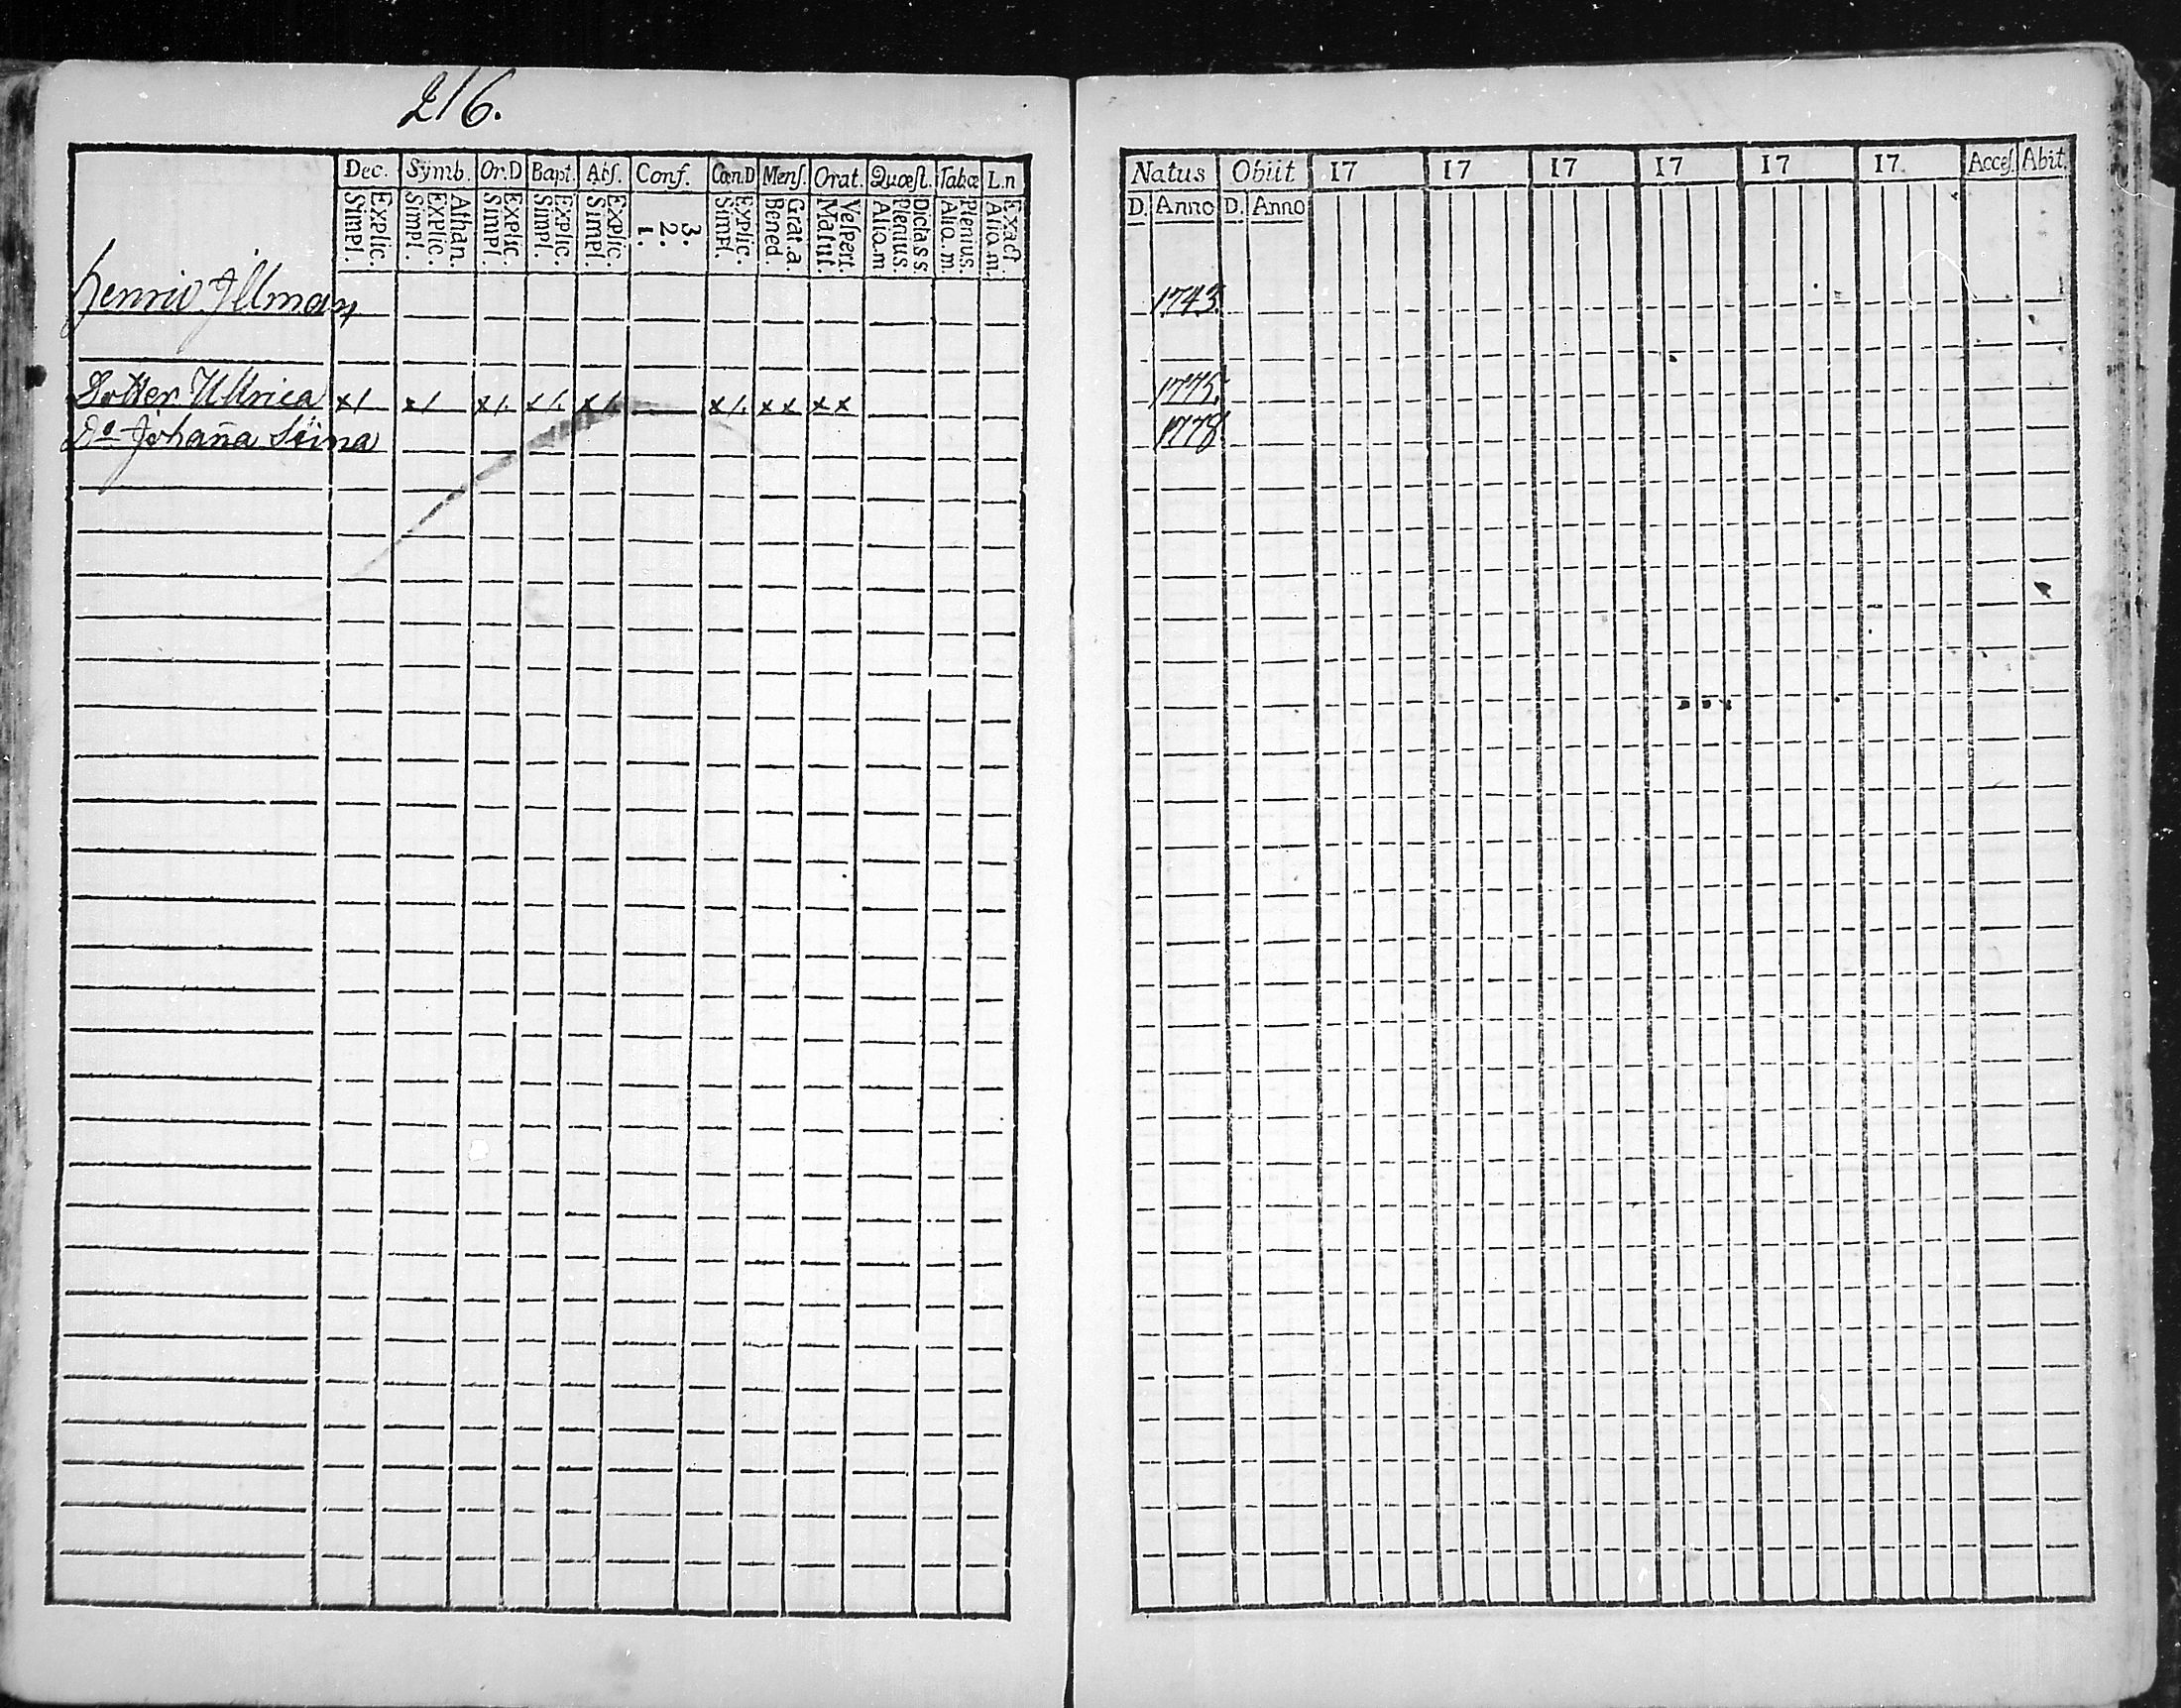 216.
Dec. Symb. Or.D Bapt. Abs. Conf. Cœn.D Mens. Orat. Quæst. Tab.œ L.n
Explic. Simpl. Athan. Explic. Simpl. Explic. Simpl. Explic. Simpl. Explic. Simpl. 3. 2. 1. Explic. Simpl. Grat.a. Bened Vespert. Matut. Dictass Plenius. Aliq.m Plenius. Aliq.m. Exact. Aliq.m.
Henric Illman
Dotter Ullrica x/ x/ x/. x/. x/. x/. xx xx
Do Johaña Stina
Natus Obiit 17 17 17 17 17 17. Acces. Abit.
D. Anno D. Anno
1743.
1775.
1778